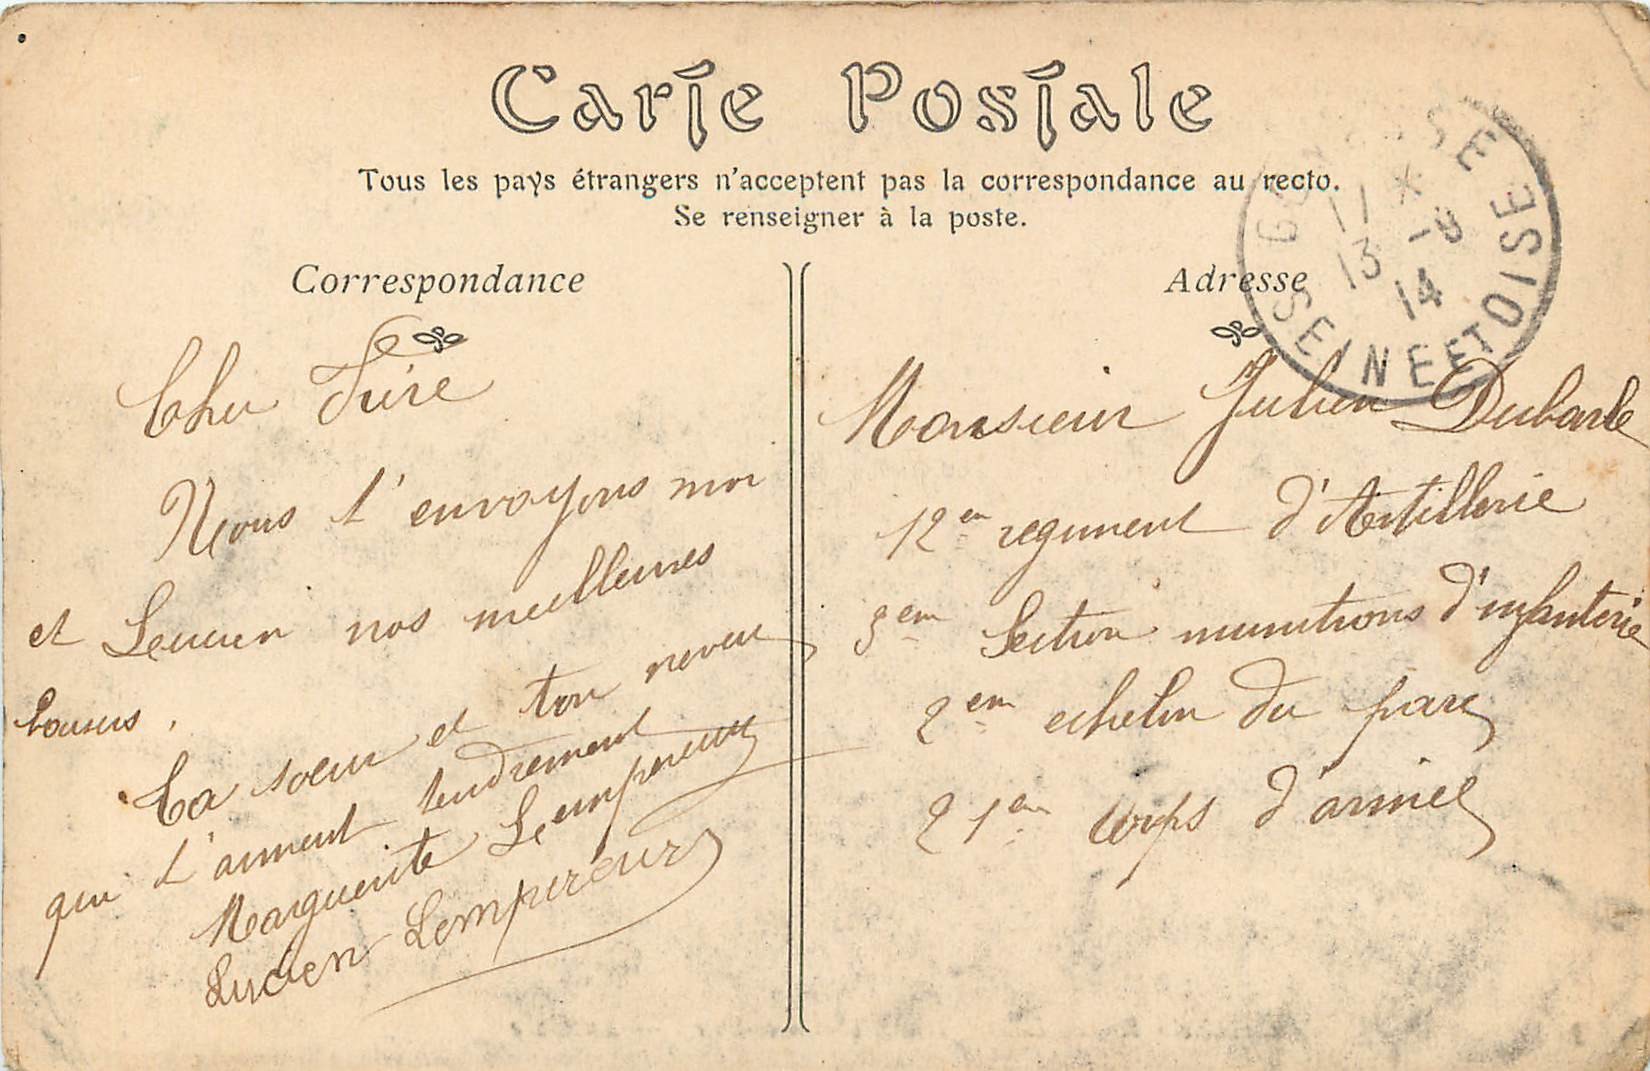 Carte Postale
Tous les pays étrangers n'acceptent pas la correspondance au recto.
Se renseigner à la poste.
Correspondance
Cher Frère
Nous t'envoyons moi
et Lucien nos meilleures
baisers.
Ta soeur et ton neveu
qui t'aiment tendrement
Marguerite Lempereur
Lucien Lempereur
Adresse
Monsieur Julien Dubarle
12em regiment d'Artillerie
3em Section munitions d'infanterie
2em echelon du parc
21em corps d'armée
17 *
13 -9
14
SEINE ET OISE